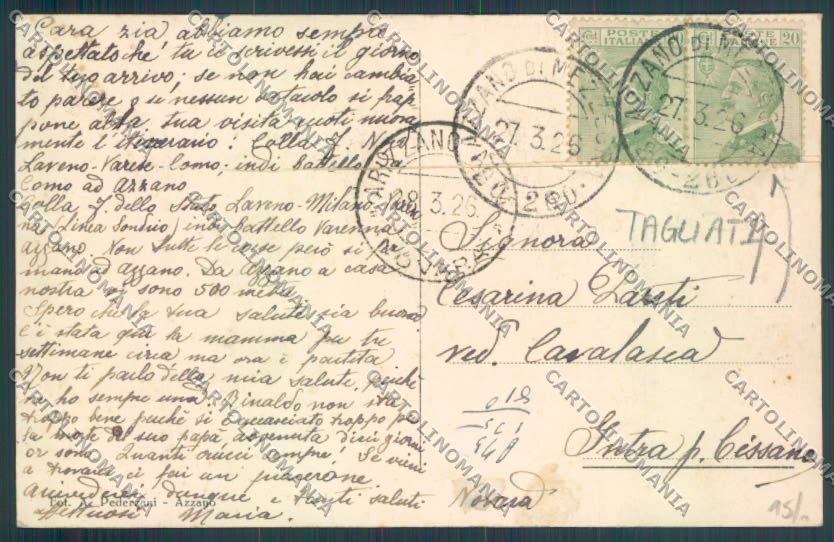 Cara zia abbiamo sempre
aspettato che tu ci scrivessi il giorno
del tuo arrivo; se non hai cambia
to parere e se nessun ostacolo si
pone alla tua visita eccoti nuova
mente l'itinerario: Colla F. Nord
Laveno-Varese-Como; indi battello da
Como ad Azzano
Colla F. dello Stato Laveno-Milano-Varen
na (Linea Sondrio) indi battello Varenna
Azzano. Non tutte le corse però si
mano ad Azzano. Da Azzano a casa
nostra vi sono 500 metri.
Spero che la tua salute sia buona.
C'è stata qui la mamma per tre
settimane circa ma ora è partita
Non ti parlo della mia salute, perchè
ne ho sempre una. Rinaldo non sta
troppo bene perchè si è accasciato troppo per
la morte del suo papà avvenuta dieci giorni
or sono. Quante croci sempre! Se vieni
a trovarci ci fai un piacerone
Arrivederci dunque e tanti saluti
affettuosi Maria.
Fot. A. Pederzani - Azzano
POSTE ITALIANE
20
27.3.26
AZZANO DI MEZZEGRA
27.3.26
28.3.26
NOVARA
TAGLIATI
Signora
Cesarina
ved. Cavalasca
Intra p. Cissano
Novara
15/-
CARTOLINOMANIA